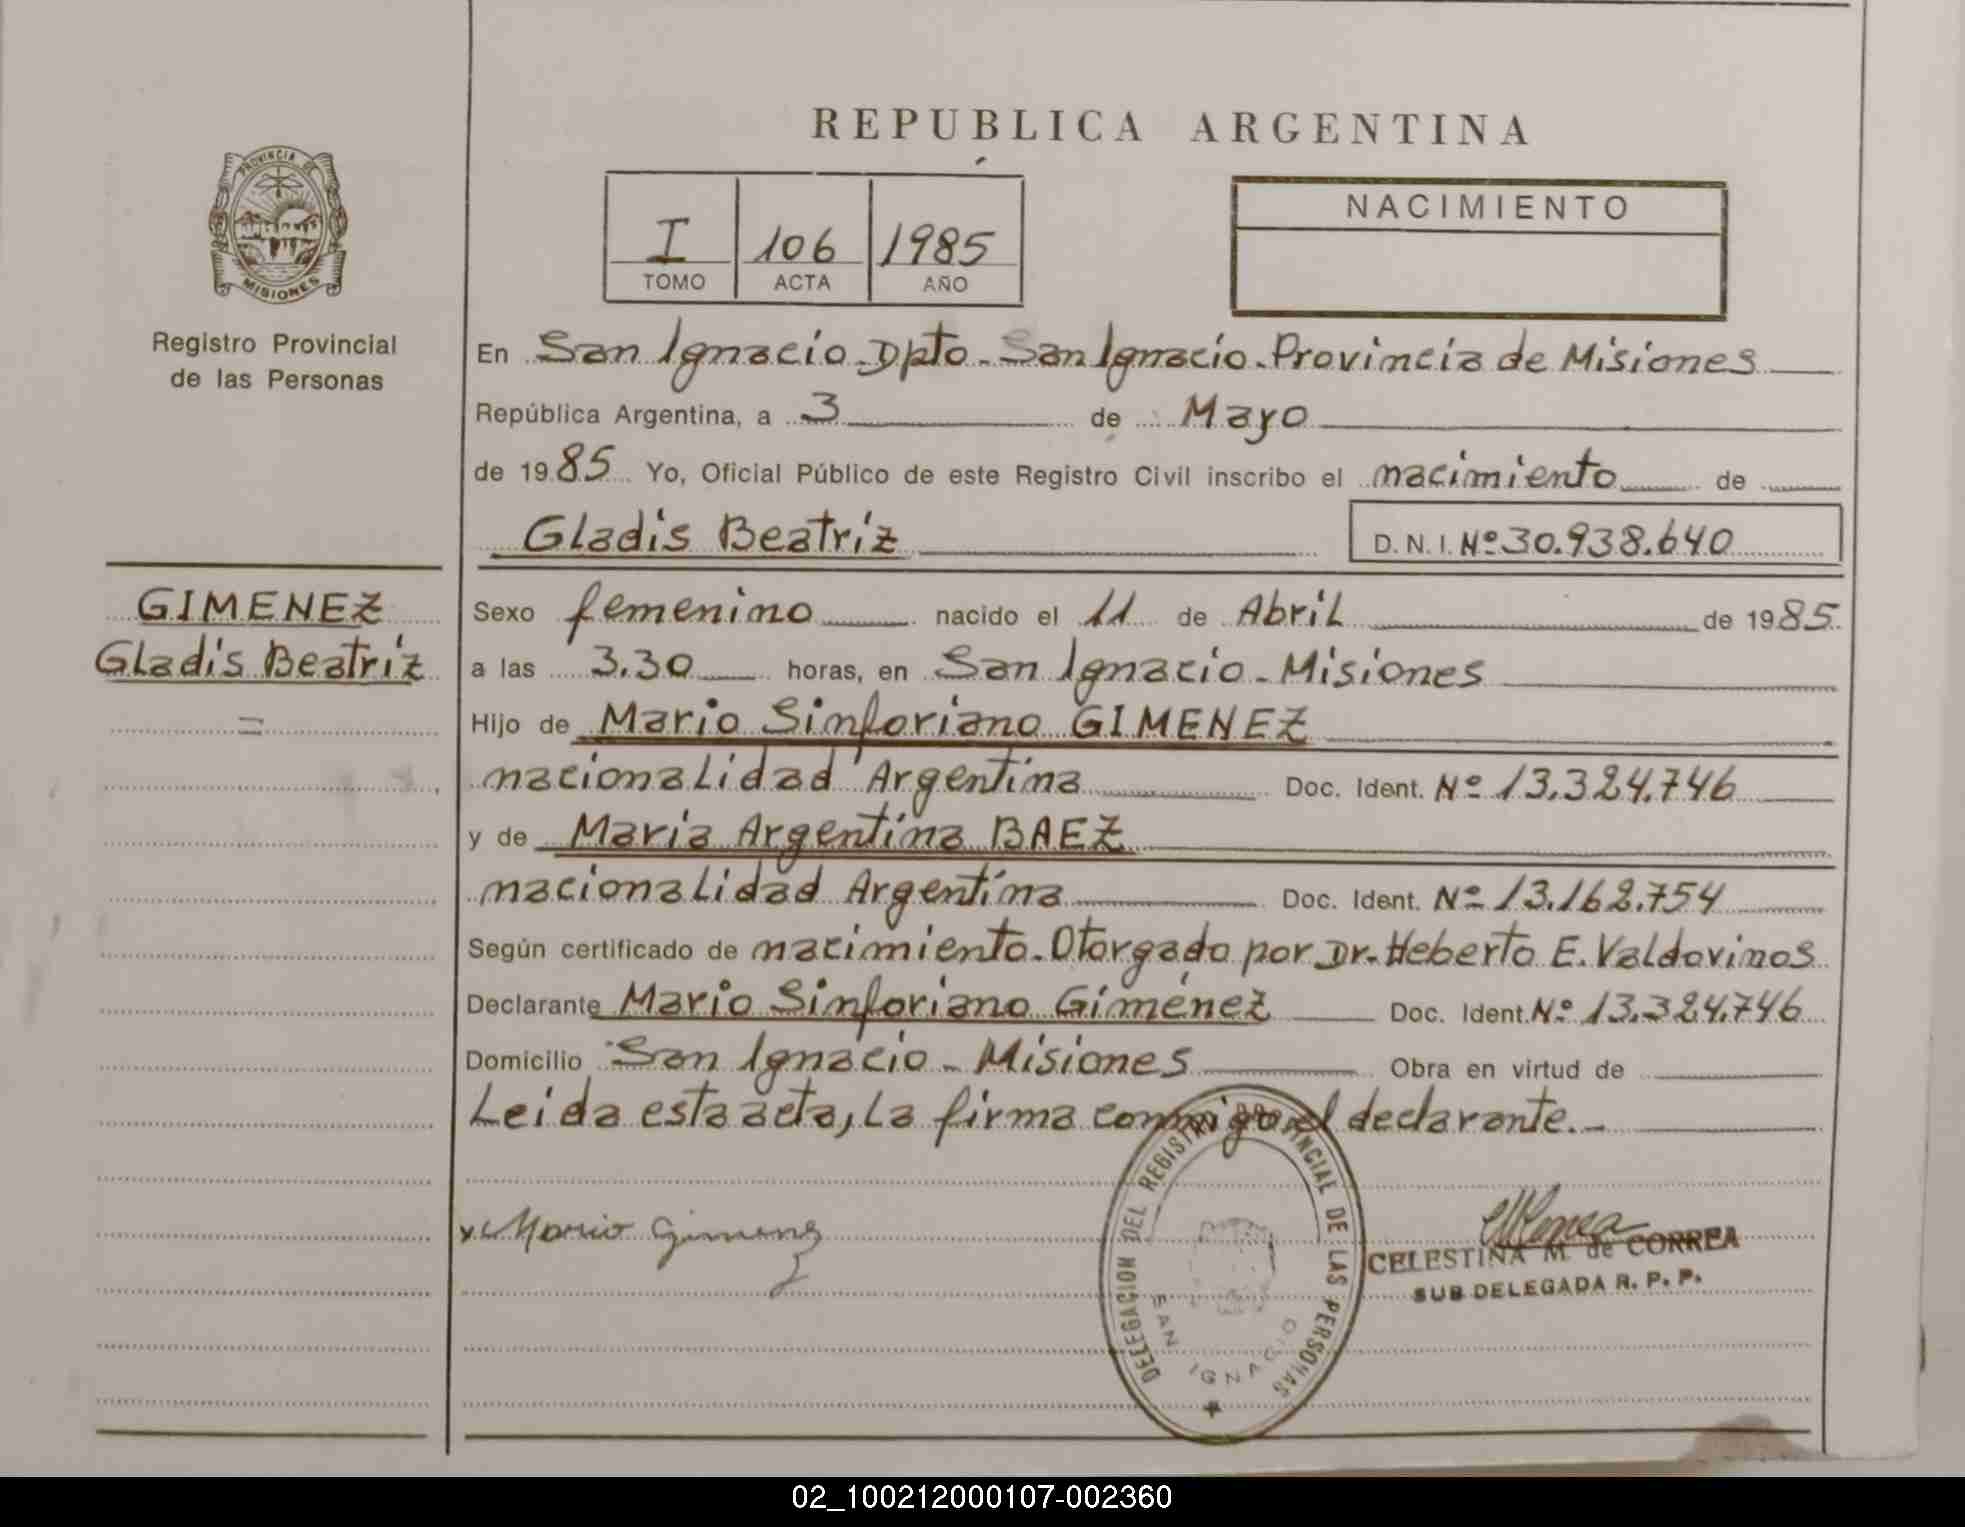 REPUBLICA ARGENTINA
PROVINCIA DE
MISIONES
Registro Provincial
de las Personas
I 106 1985
TOMO ACTA AÑO
NACIMIENTO
En San Ignacio-Dpto-San Ignacio-Provincia de Misiones
República Argentina, a 3 de Mayo
de 1985 Yo, Oficial Público de este Registro Civil inscribo el nacimiento de
Gladis Beatriz D. N. I. Nº 30.938.640
GIMENEZ
Gladis Beatriz
=
Sexo femenino nacido el 11 de Abril de 1985
a las 3.30 horas, en San Ignacio-Misiones
Hijo de Mario Sinforiano GIMENEZ
nacionalidad Argentina Doc. Ident. Nº 13.324.746
y de Maria Argentina BAEZ
nacionalidad Argentina Doc. Ident. Nº 13.162.754
Según certificado de nacimiento-Otorgado por Dr. Heberto E. Valdovinos
Declarante Mario Sinforiano Giménez Doc. Ident. Nº 13.324.746
Domicilio San Ignacio - Misiones Obra en virtud de
Leida esta acta, la firma conmigo el declarante.-
x Mario Gimenez
DELEGACION DEL REGISTRO PROVINCIAL DE LAS PERSONAS
SAN IGNACIO
CELESTINA M. de CORREA
SUB DELEGADA R. P. P.
02_100212000107-002360